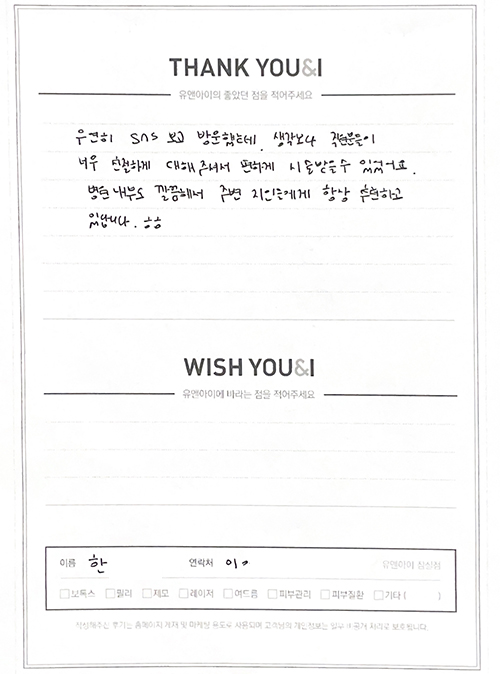 THANK YOU&I
유앤아이의 좋았던 점을 적어주세요
우연히 SNS 보고 방문했는데, 생각보다 직원분들이
너무 친절하게 대해주셔서 편하게 시술받을수 있었어요.
병원내부도 깔끔해서 주변 지인들에게 항상 추천하고
있답니다. ㅎㅎ
WISH YOU&I
유앤아이에 바라는 점을 적어주세요
이름 한 연락처 01 유앤아이 잠실점
보톡스 필러 제모 레이저 여드름 피부관리 피부질환 기타 ( )
작성해주신 후기는 홈페이지 게재 및 마케팅 용도로 사용되며 고객님의 개인정보는 일부 비공개 처리로 보호됩니다.